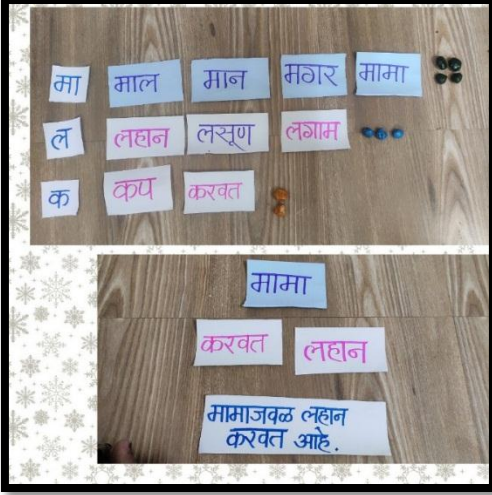 मा माल मान मगर मामा
ल लहान लसूण लगाम
क कप करवत
मामा
करवत लहान
मामाजवळ लहान
करवत आहे.